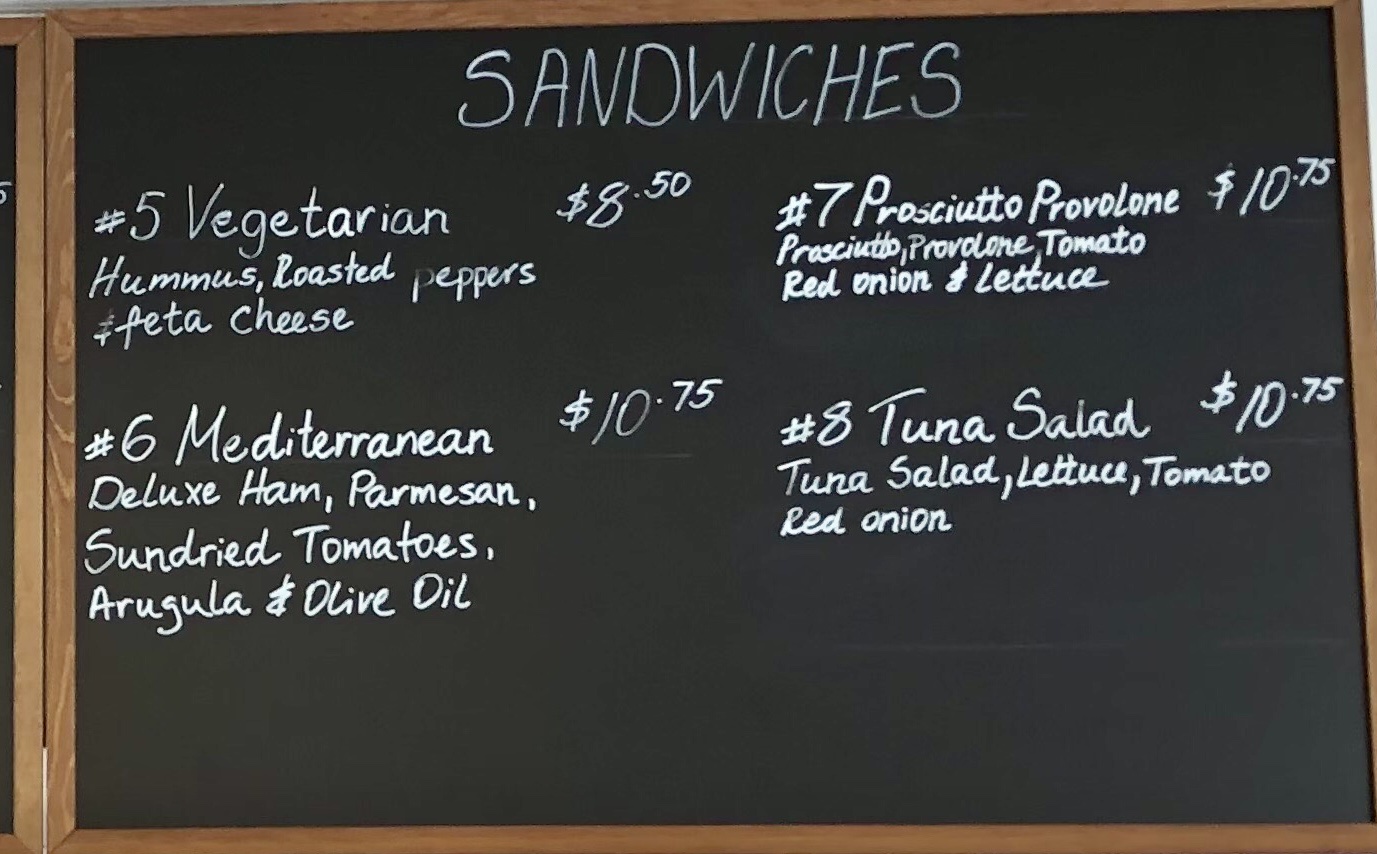 SANDWICHES
#5 Vegetarian $8.50
Hummus, Roasted peppers
& feta cheese
#6 Mediterranean $10.75
Deluxe Ham, Parmesan,
Sundried Tomatoes,
Arugula & Olive Oil
#7 Prosciutto Provolone $10.75
Prosciutto, Provolone, Tomato
Red onion & Lettuce
#8 Tuna Salad $10.75
Tuna Salad, Lettuce, Tomato
Red onion